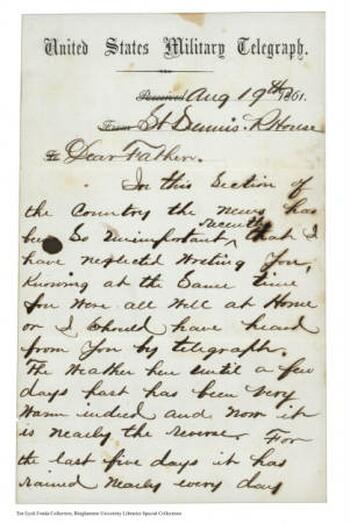 United States Military Telegraph.
Received Aug 19th 1861.
From St Dennis. R House
To Dear Father.
In this Section of
the Country the news has
been So unimportant recently that I
have neglected Writing You,
Knowing at the Same time
You Were all Well at Home
or I Should have heard
from You by telegraph.
The Weather here until a few
days past has been very
Warm indeed and now it
is nearly the reverse. For
the last five days it has
rained nearly every day
Ten Eyck Fonda Collection, Binghamton University Libraries Special Collections